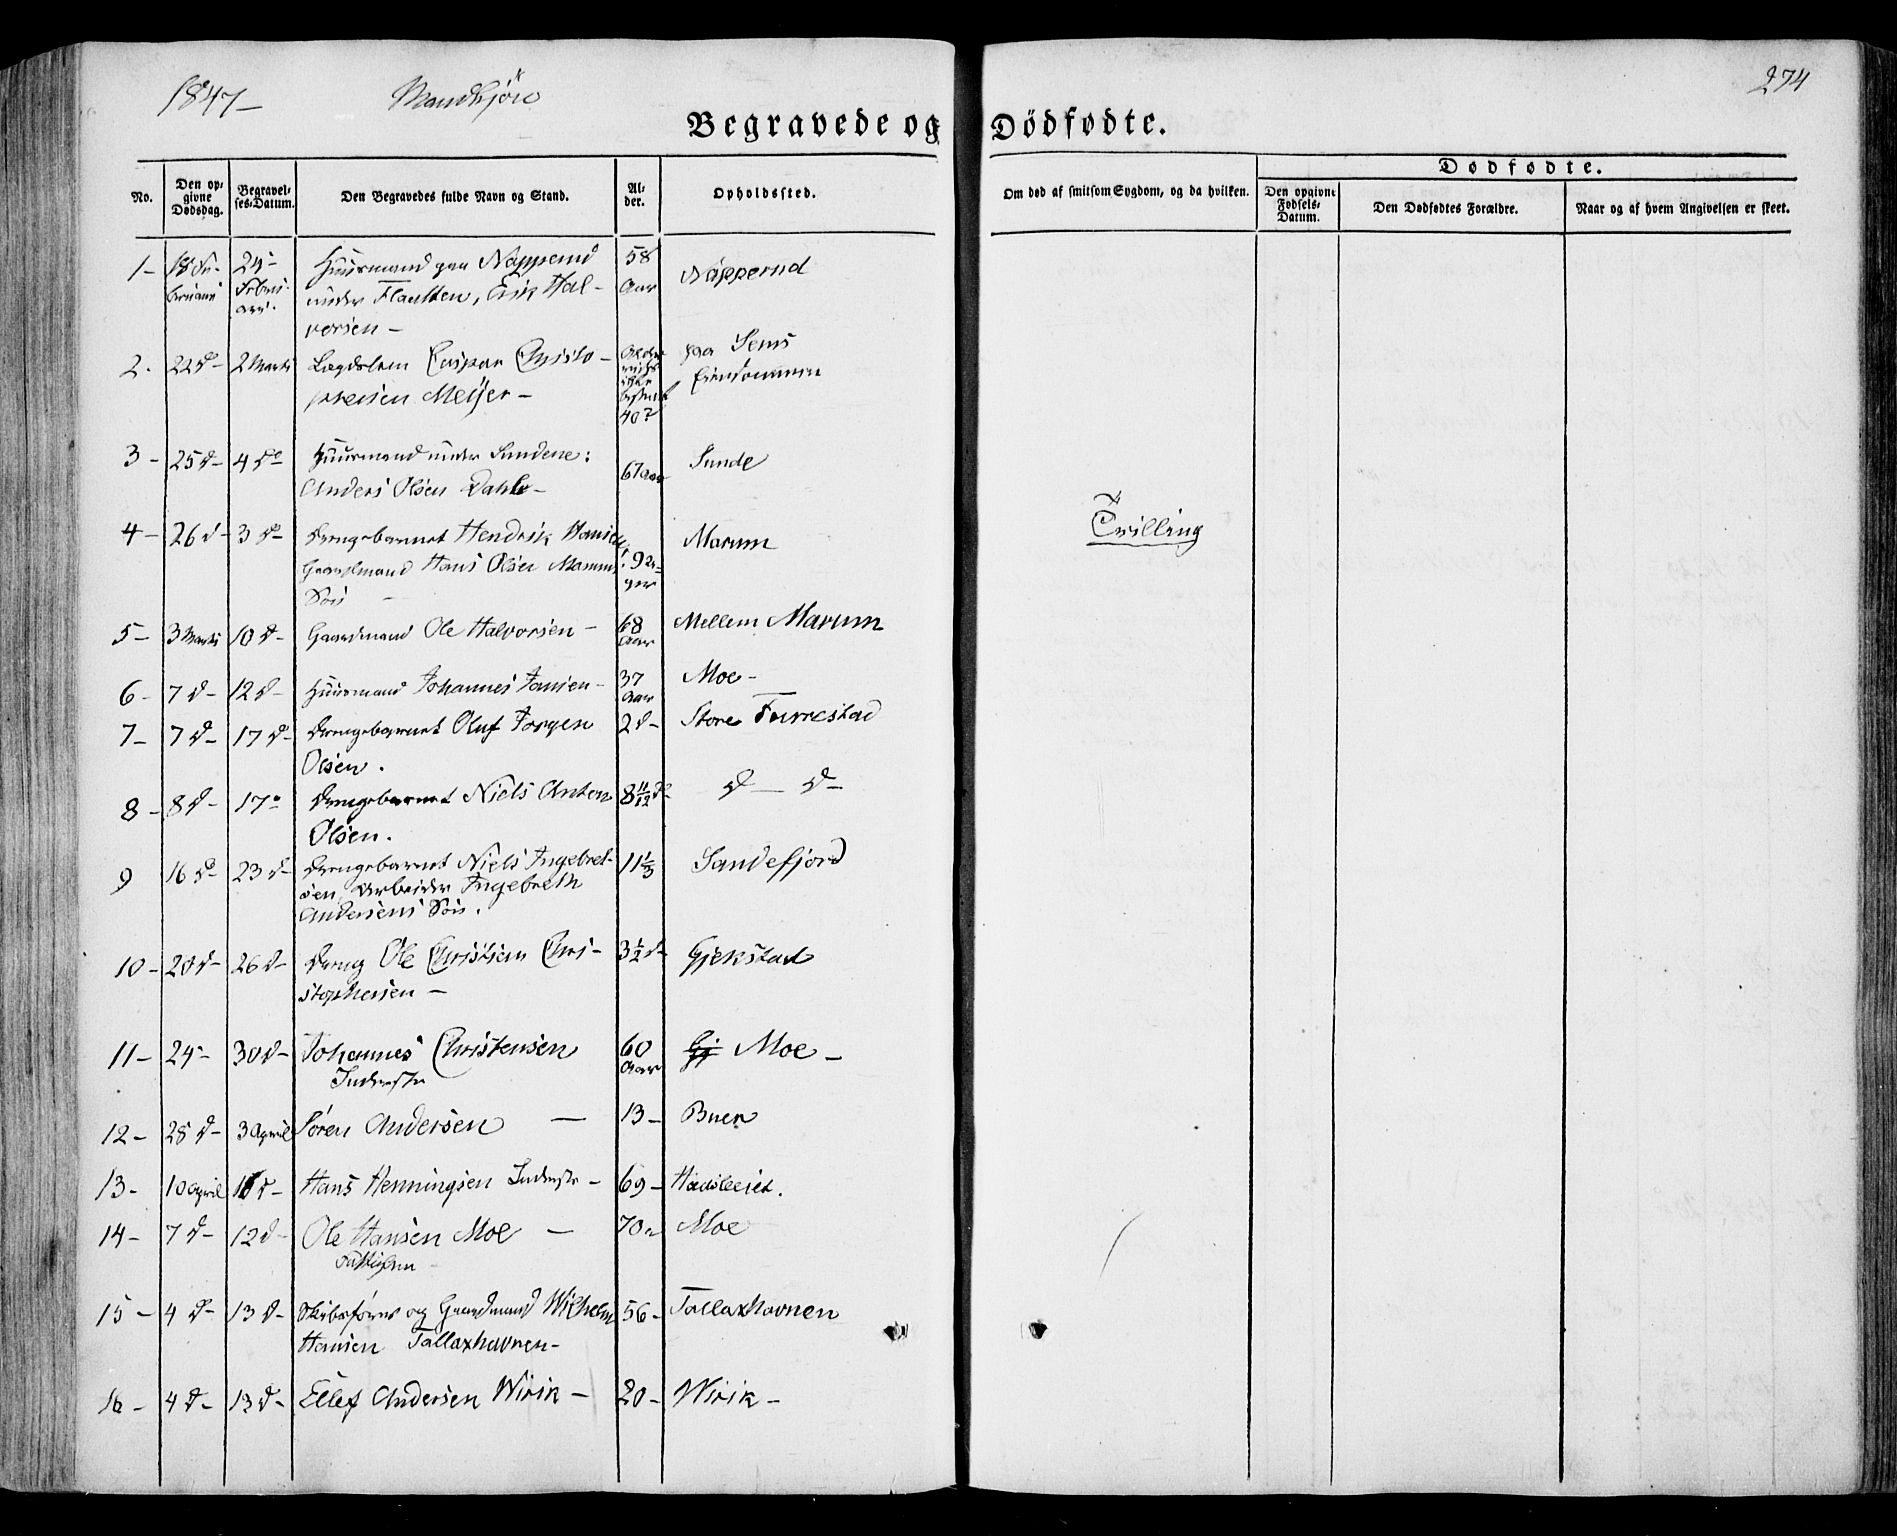 1847 Mandkjön 274
Begravede og Dödfødte.
No. Den opgivne Dødsdag. Begravelses-Datum. Den Begravedes fulde Navn og Stand. Alder. Opholdssted. Om død af smitsom Sygdom, og da hvilken. Dødfødte.
Den opgivne Fødsels-Datum. Den Dødfødtes Forældre. Naar og af hvem Angivelsen er skeet.
1- 18 Fe- 24- Huusmand paa Näppernd 58 Näppernd
bruari Febru- under Flautten, Erik Hal- Aar
ari. vorsen -
2. 22 d- 2 Marts Lægdslem Caspar Christo- paa Sems
phersen Meijer - Eiendommen
40?
3- 25 d- 4 do Huusmand under Sundene: 67 Aar Sunde
Anders Olsen Dahle-
4- 26 d- 3 do Drengebarnet Hendrik Hansen, Marum Tvilling
Gaardmand Hans Olsen Marums 9 Da-
Søn - ger
5- 3 Marts 10 d- Gaardmand Ole Halvorsen - 68 Aar Mellem Marum
6- 7 d- 12 d- Huusmand Johannes Jansen - 37 Aar Moe-
7- 7 d- 17 d- Drengebarnet Oluf Jorgen 2 d- Store Furrestad
Olsen.
8- 8 d- 17 - Drengebarnet Niels Anton 8 11/12 d- d- d-
Olsen.
9 16 d 23 d- Drengebarnet Niels Ingebret- 11 1/3 Sandefjord
sen, Arbeider Ingebreth
Andersens Søn.
10- 20 d- 26 d- Dreng Ole Christian Chri- 3 1/2 d- Gjekstad
stophersen -
11- 24- 30 d- Johannes Christensen 60 Aar Gj Moe -
Inderste
12- 28 d- 3 April Sören Andersen - 13- Buen
13- 10 April d- Hans Henningsen Inderste - 69-
14- 7 d- 12 d- Ole Hansen Moe - 70- Moe
Fattiglem
15- 4 d- 13 d- Skibsfører og Gaardmand Wilhelm 56- Tallaxhavnen
Hansen Tallaxhavnen-
16- 4 d- 13 d- Ellef Andersen Wirik - 20- Wirik -